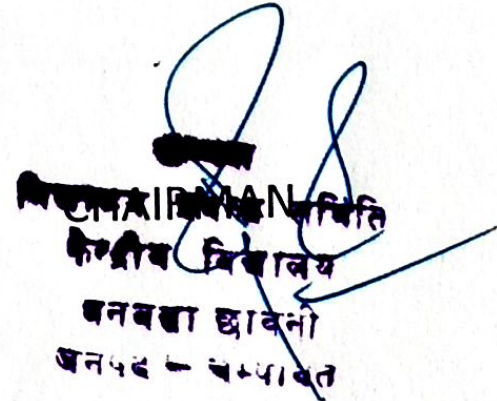 CHAIRMAN
समिति
केन्द्रीय विद्यालय
बनबसा छावनी
जनपद - चम्पावत